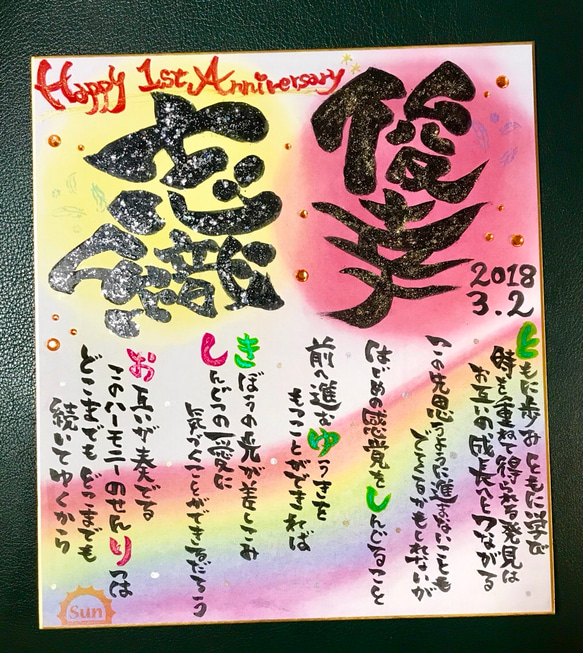 Happy 1st Anniversary
俊幸
志織
2018
3.2
ともに歩み ともに学び
時を重ねて得られる発見は
お互いの成長へとつながる
この先思うように進まないことも
でてくるかもしれないが
はじめの感覚をしんじること
前へ進むゆうきを
もつことができれば
きぼうの光が差しこみ
しんじつの愛に
気づくことができるだろう
お互いが奏でる
このハーモニーのせんりつは
どこまでもどこまでも
続いてゆくから
Sun